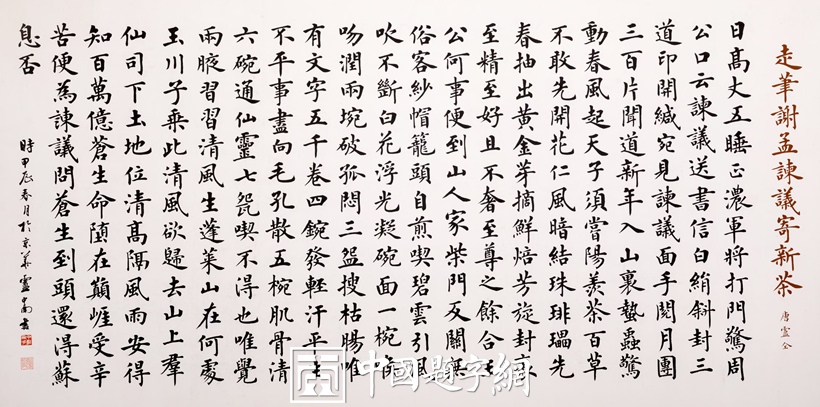 走筆謝孟諫議寄新茶
唐 盧仝
日高丈五睡正濃軍將打門驚周
公口云諫議送書信白絹斜封三
道印開緘宛見諫議面手閱月團
三百片聞道新年入山裏蟄蟲驚
動春風起天子須嘗陽羨茶百草
不敢先開花仁風暗結珠琲瓃先
春抽出黃金芽摘鮮焙芳旋封裹
至精至好且不奢至尊之餘合王
公何事便到山人家柴門反關無
俗客紗帽籠頭自煎喫碧雲引風
吹不斷白花浮光凝碗面一椀喉
吻潤兩埦破孤悶三盌搜枯腸唯
有文字五千卷四鋺發輕汗平生
不平事盡向毛孔散五椀肌骨清
六碗通仙靈七㼝喫不得也唯覺
兩腋習習清風生蓬萊山在何處
玉川子乘此清風欲歸去山上羣
仙司下土地位清高隔風雨安得
知百萬億蒼生命墮在巔崖受辛
苦便為諫議問蒼生到頭還得蘇
息否
時甲辰春月於京華盧中南書
中國題字網